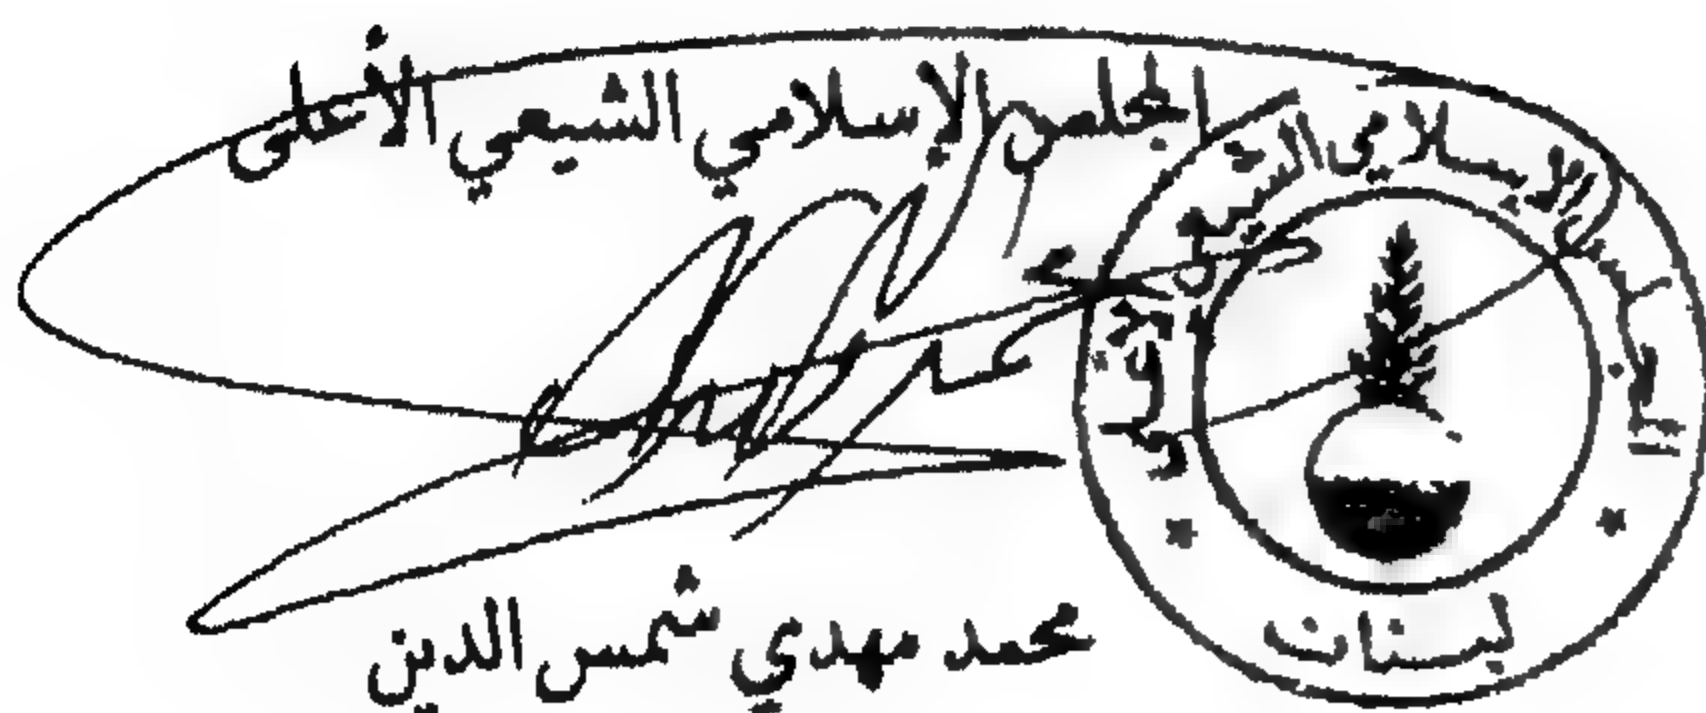 المجلس الإسلامي الشيعي الأعلى
المجلس الإسلامي الشيعي الأعلى
لبنان
محمد مهدي شمس الدين